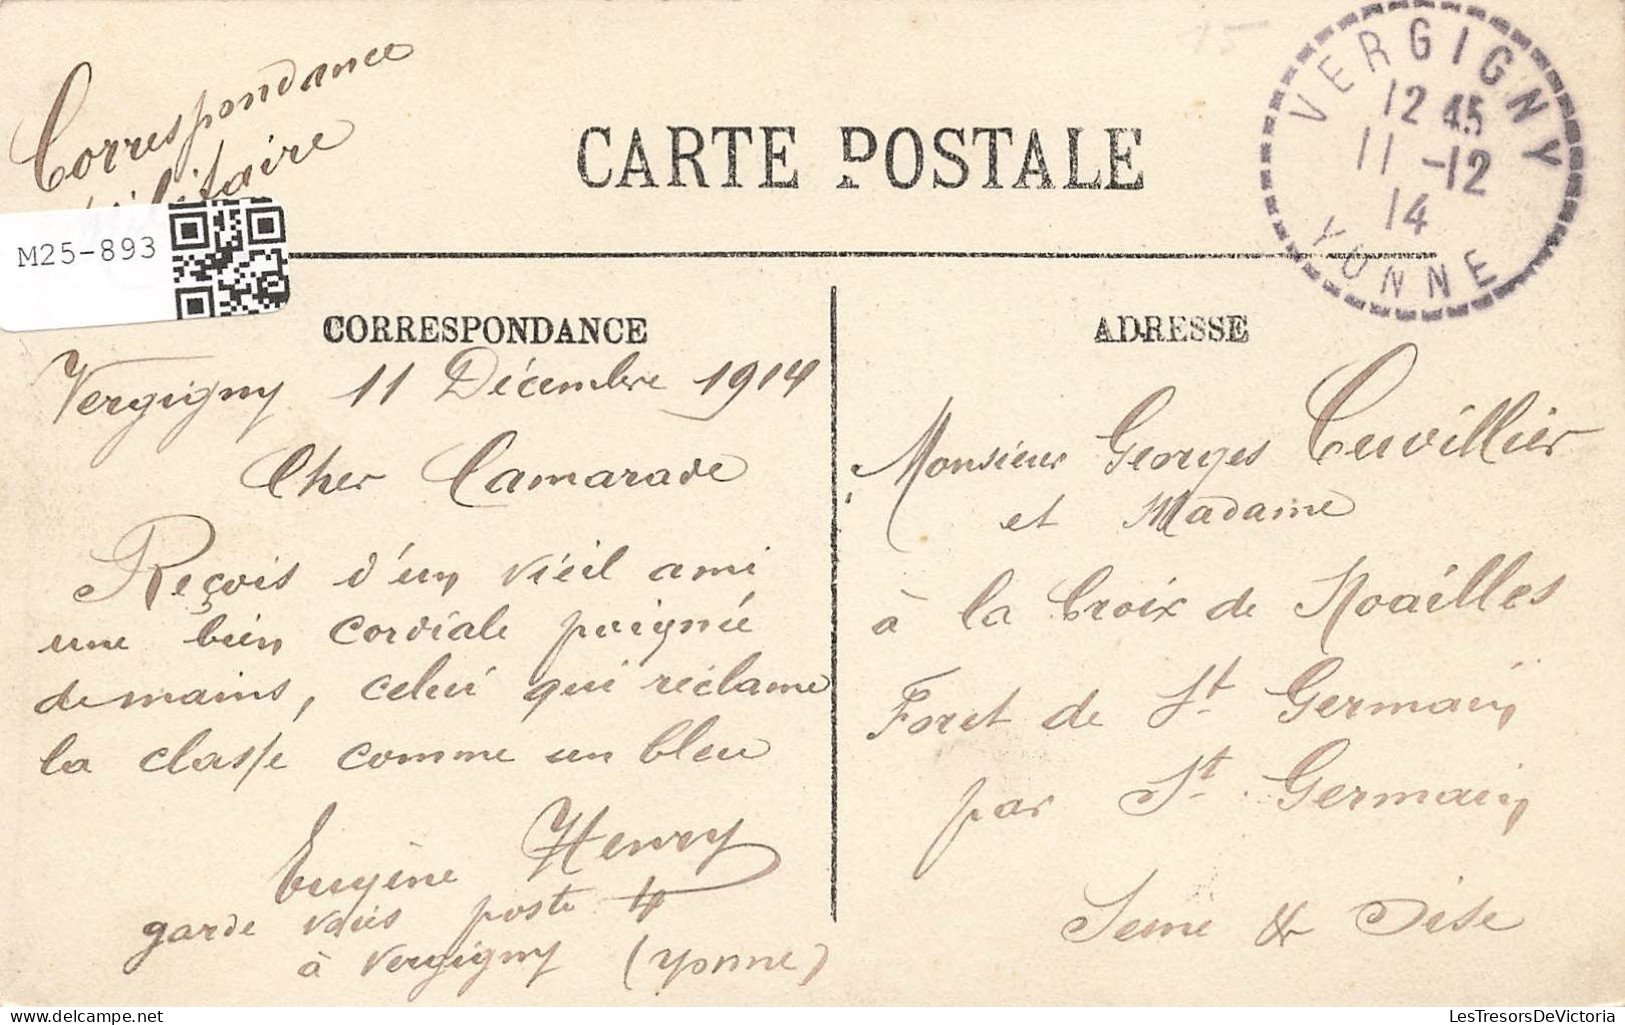 Correspondance
militaire
CARTE POSTALE
VERGIGNY
12 45
11 -12
14
YONNE
M25-893
CORRESPONDANCE
Vergigny 11 Décembre 1914
Cher Camarade
Reçois d'un vieil ami
une bien cordiale poignée
de mains, celui qui réclame
la classe comme un bleu
Eugène Henry
garde voies poste 4
à Vergigny (Yonne)
ADRESSE
Monsieur Georges Cuvillier
et Madame
à la Croix de Noailles
Foret de St Germain
par St. Germain
Seine & Oise
LesTresorsDeVictoria
delcampe.net